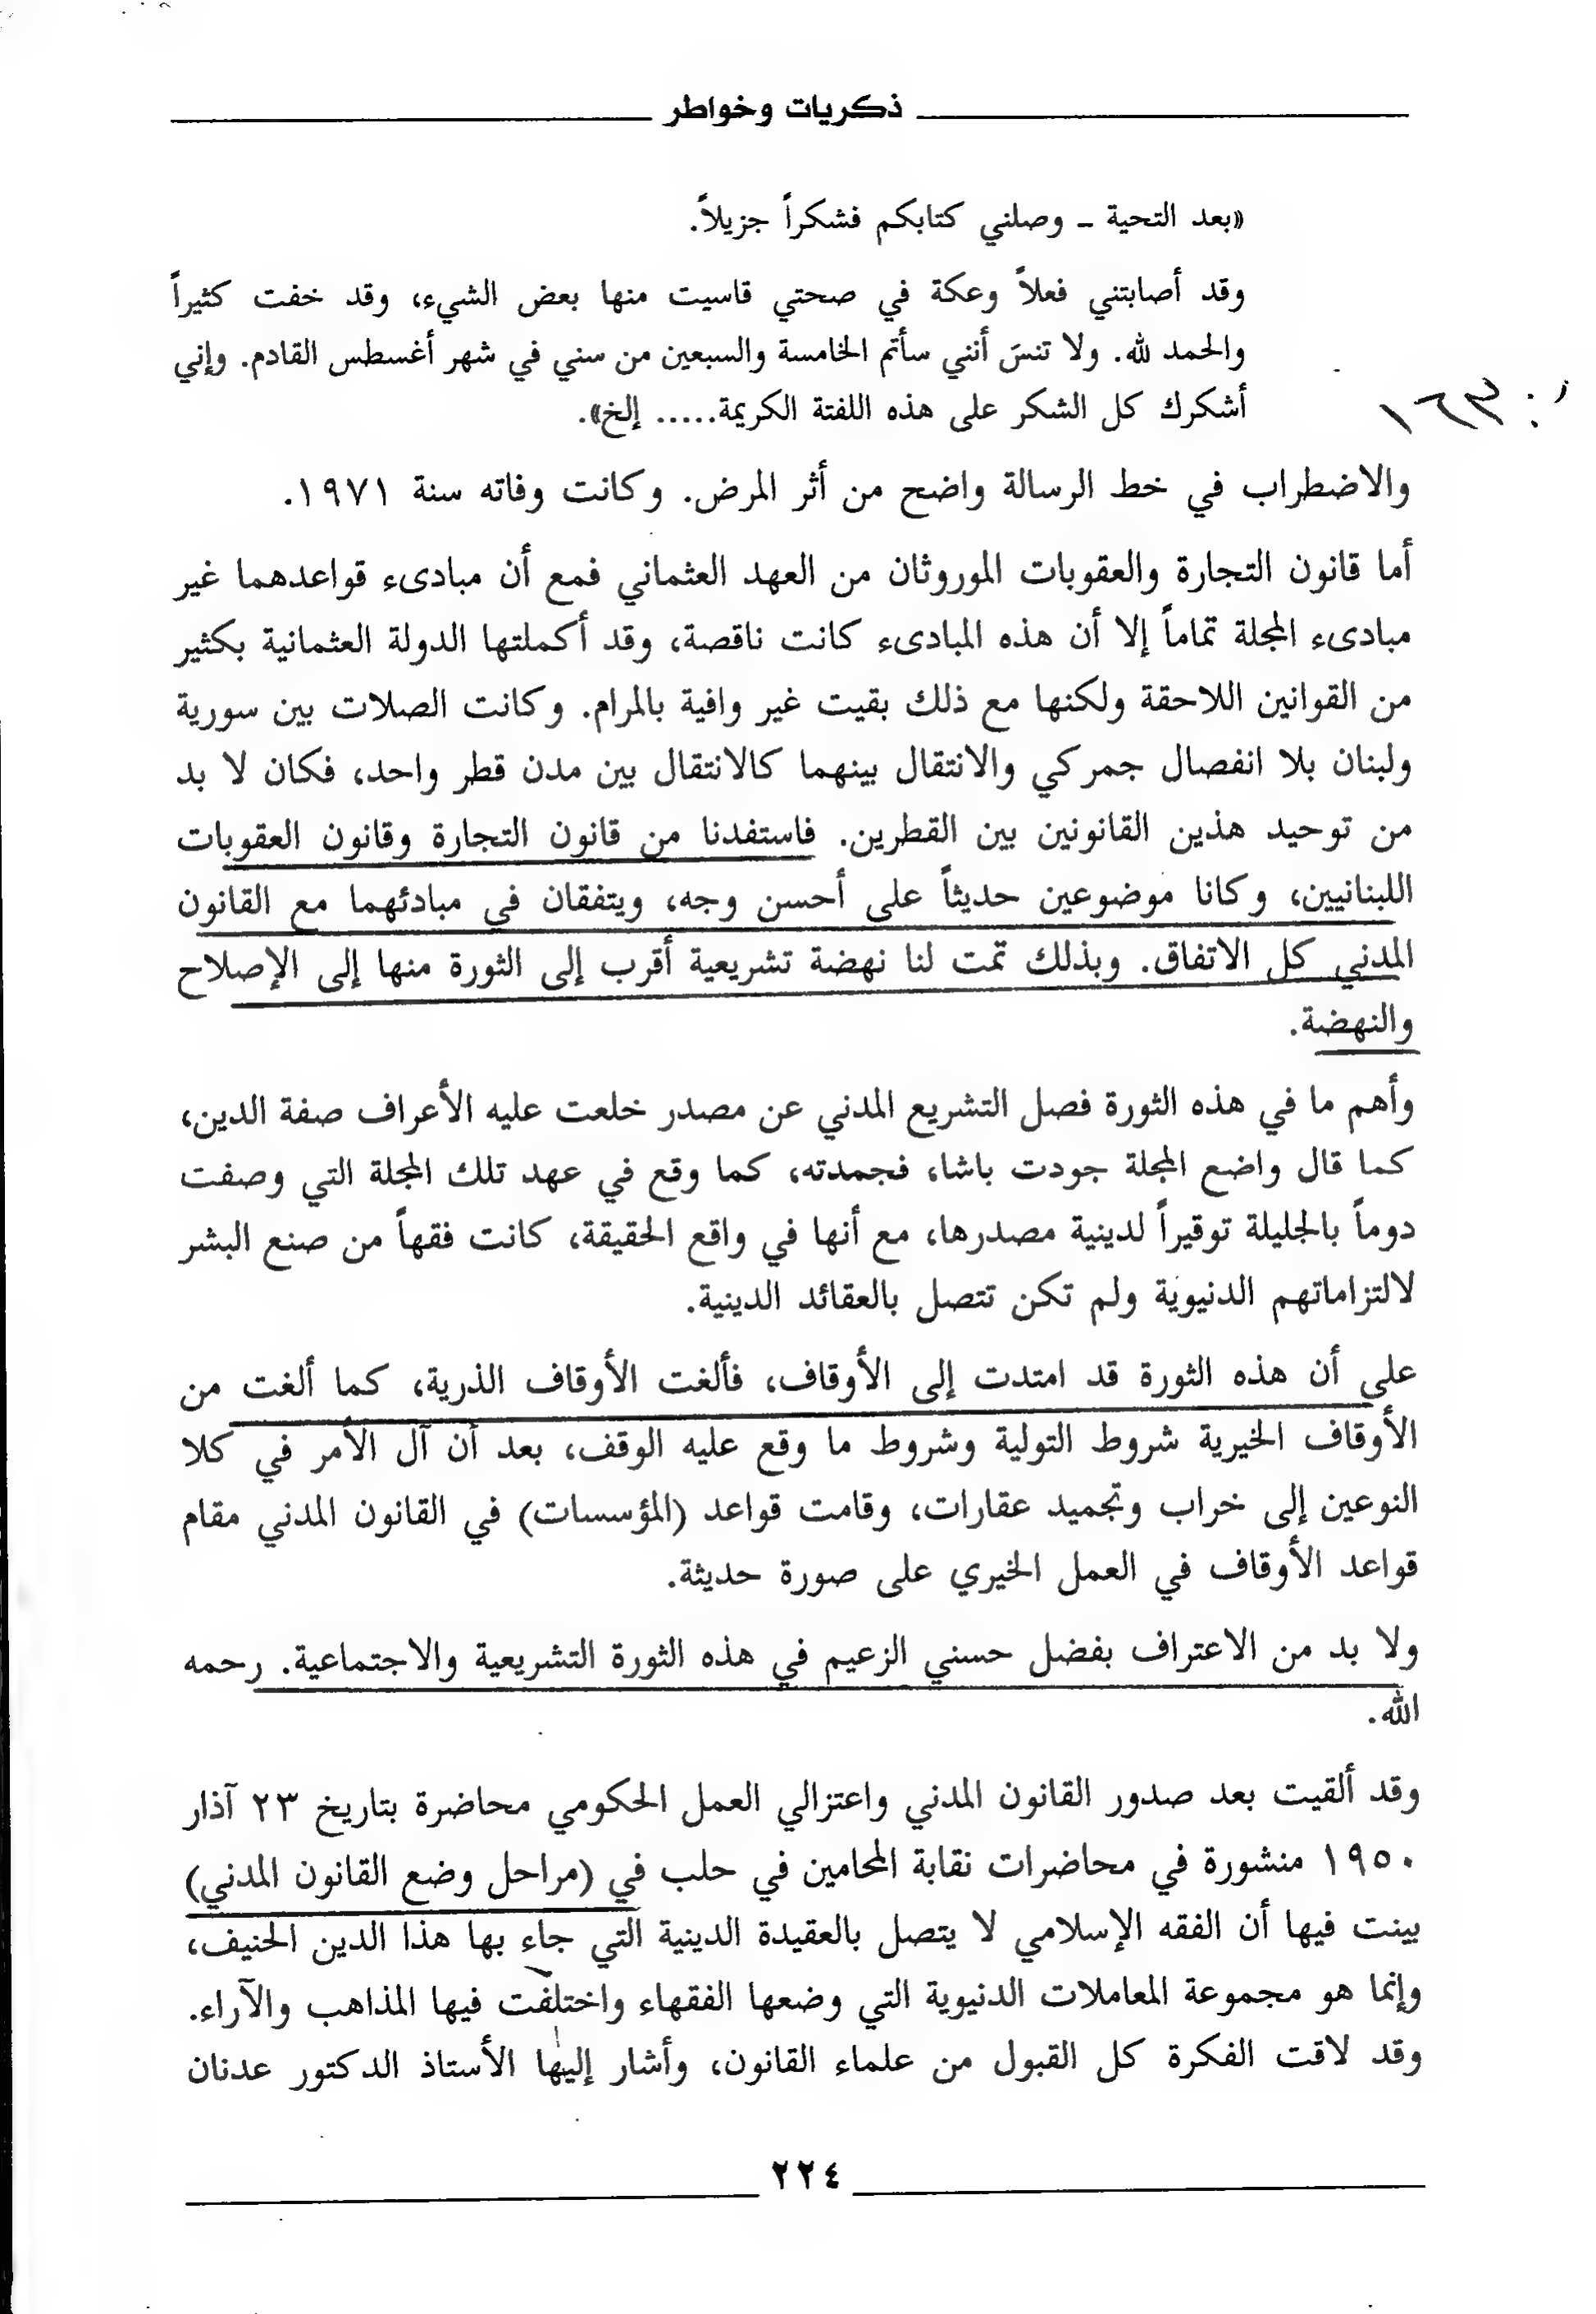 ذكريات وخواطر
«بعد التحية ـ وصلني كتابكم فشكراً جزيلاً.
وقد أصابتني فعلاً وعكة في صحتي قاسيت منها بعض الشيء، وقد خفت كثيراً
والحمد لله. ولا تنسَ أنني سأتم الخامسة والسبعين من سني في شهر أغسطس القادم. وإني
أشكرك كل الشكر على هذه اللفتة الكريمة..... إلخ».
والاضطراب في خط الرسالة واضح من أثر المرض. وكانت وفاته سنة ١٩٧١.
أما قانون التجارة والعقوبات الموروثان من العهد العثماني فمع أن مبادىء قواعدهما غير
مبادىء المجلة تماماً إلا أن هذه المبادىء كانت ناقصة، وقد أكملتها الدولة العثمانية بكثير
من القوانين اللاحقة ولكنها مع ذلك بقيت غير وافية بالمرام. وكانت الصلات بين سورية
ولبنان بلا انفصال جمركي والانتقال بينهما كالانتقال بين مدن قطر واحد، فكان لا بد
من توحيد هذين القانونين بين القطرين. فاستفدنا من قانون التجارة وقانون العقوبات
اللبنانيين، وكانا موضوعين حديثاً على أحسن وجه، ويتفقان في مبادئهما مع القانون
المدني كل الاتفاق. وبذلك تمت لنا نهضة تشريعية أقرب إلى الثورة منها إلى الإصلاح
والنهضة.
وأهم ما في هذه الثورة فصل التشريع المدني عن مصدر خلعت عليه الأعراف صفة الدين،
كما قال واضع المجلة جودت باشا، فجمدته، كما وقع في عهد تلك المجلة التي وصفت
دوماً بالجليلة توقيراً لدينية مصدرها، مع أنها في واقع الحقيقة، كانت فقهاً من صنع البشر
لالتزاماتهم الدنيوية ولم تكن تتصل بالعقائد الدينية.
على أن هذه الثورة قد امتدت إلى الأوقاف، فألغت الأوقاف الذرية، كما ألغت من
الأوقاف الخيرية شروط التولية وشروط ما وقع عليه الوقف، بعد أن آل الأمر في كلا
النوعين إلى خراب وتجميد عقارات، وقامت قواعد (المؤسسات) في القانون المدني مقام
قواعد الأوقاف في العمل الخيري على صورة حديثة.
ولا بد من الاعتراف بفضل حسني الزعيم في هذه الثورة التشريعية والاجتماعية. رحمه
الله.
وقد ألقيت بعد صدور القانون المدني واعتزالي العمل الحكومي محاضرة بتاريخ ٢٣ آذار
١٩٥٠ منشورة في محاضرات نقابة المحامين في حلب في (مراحل وضع القانون المدني)
بينت فيها أن الفقه الإسلامي لا يتصل بالعقيدة الدينية التي جاء بها هذا الدين الحنيف،
وإنما هو مجموعة المعاملات الدنيوية التي وضعها الفقهاء واختلفت فيها المذاهب والآراء.
وقد لاقت الفكرة كل القبول من علماء القانون، وأشار إليها الأستاذ الدكتور عدنان
٢٢٤